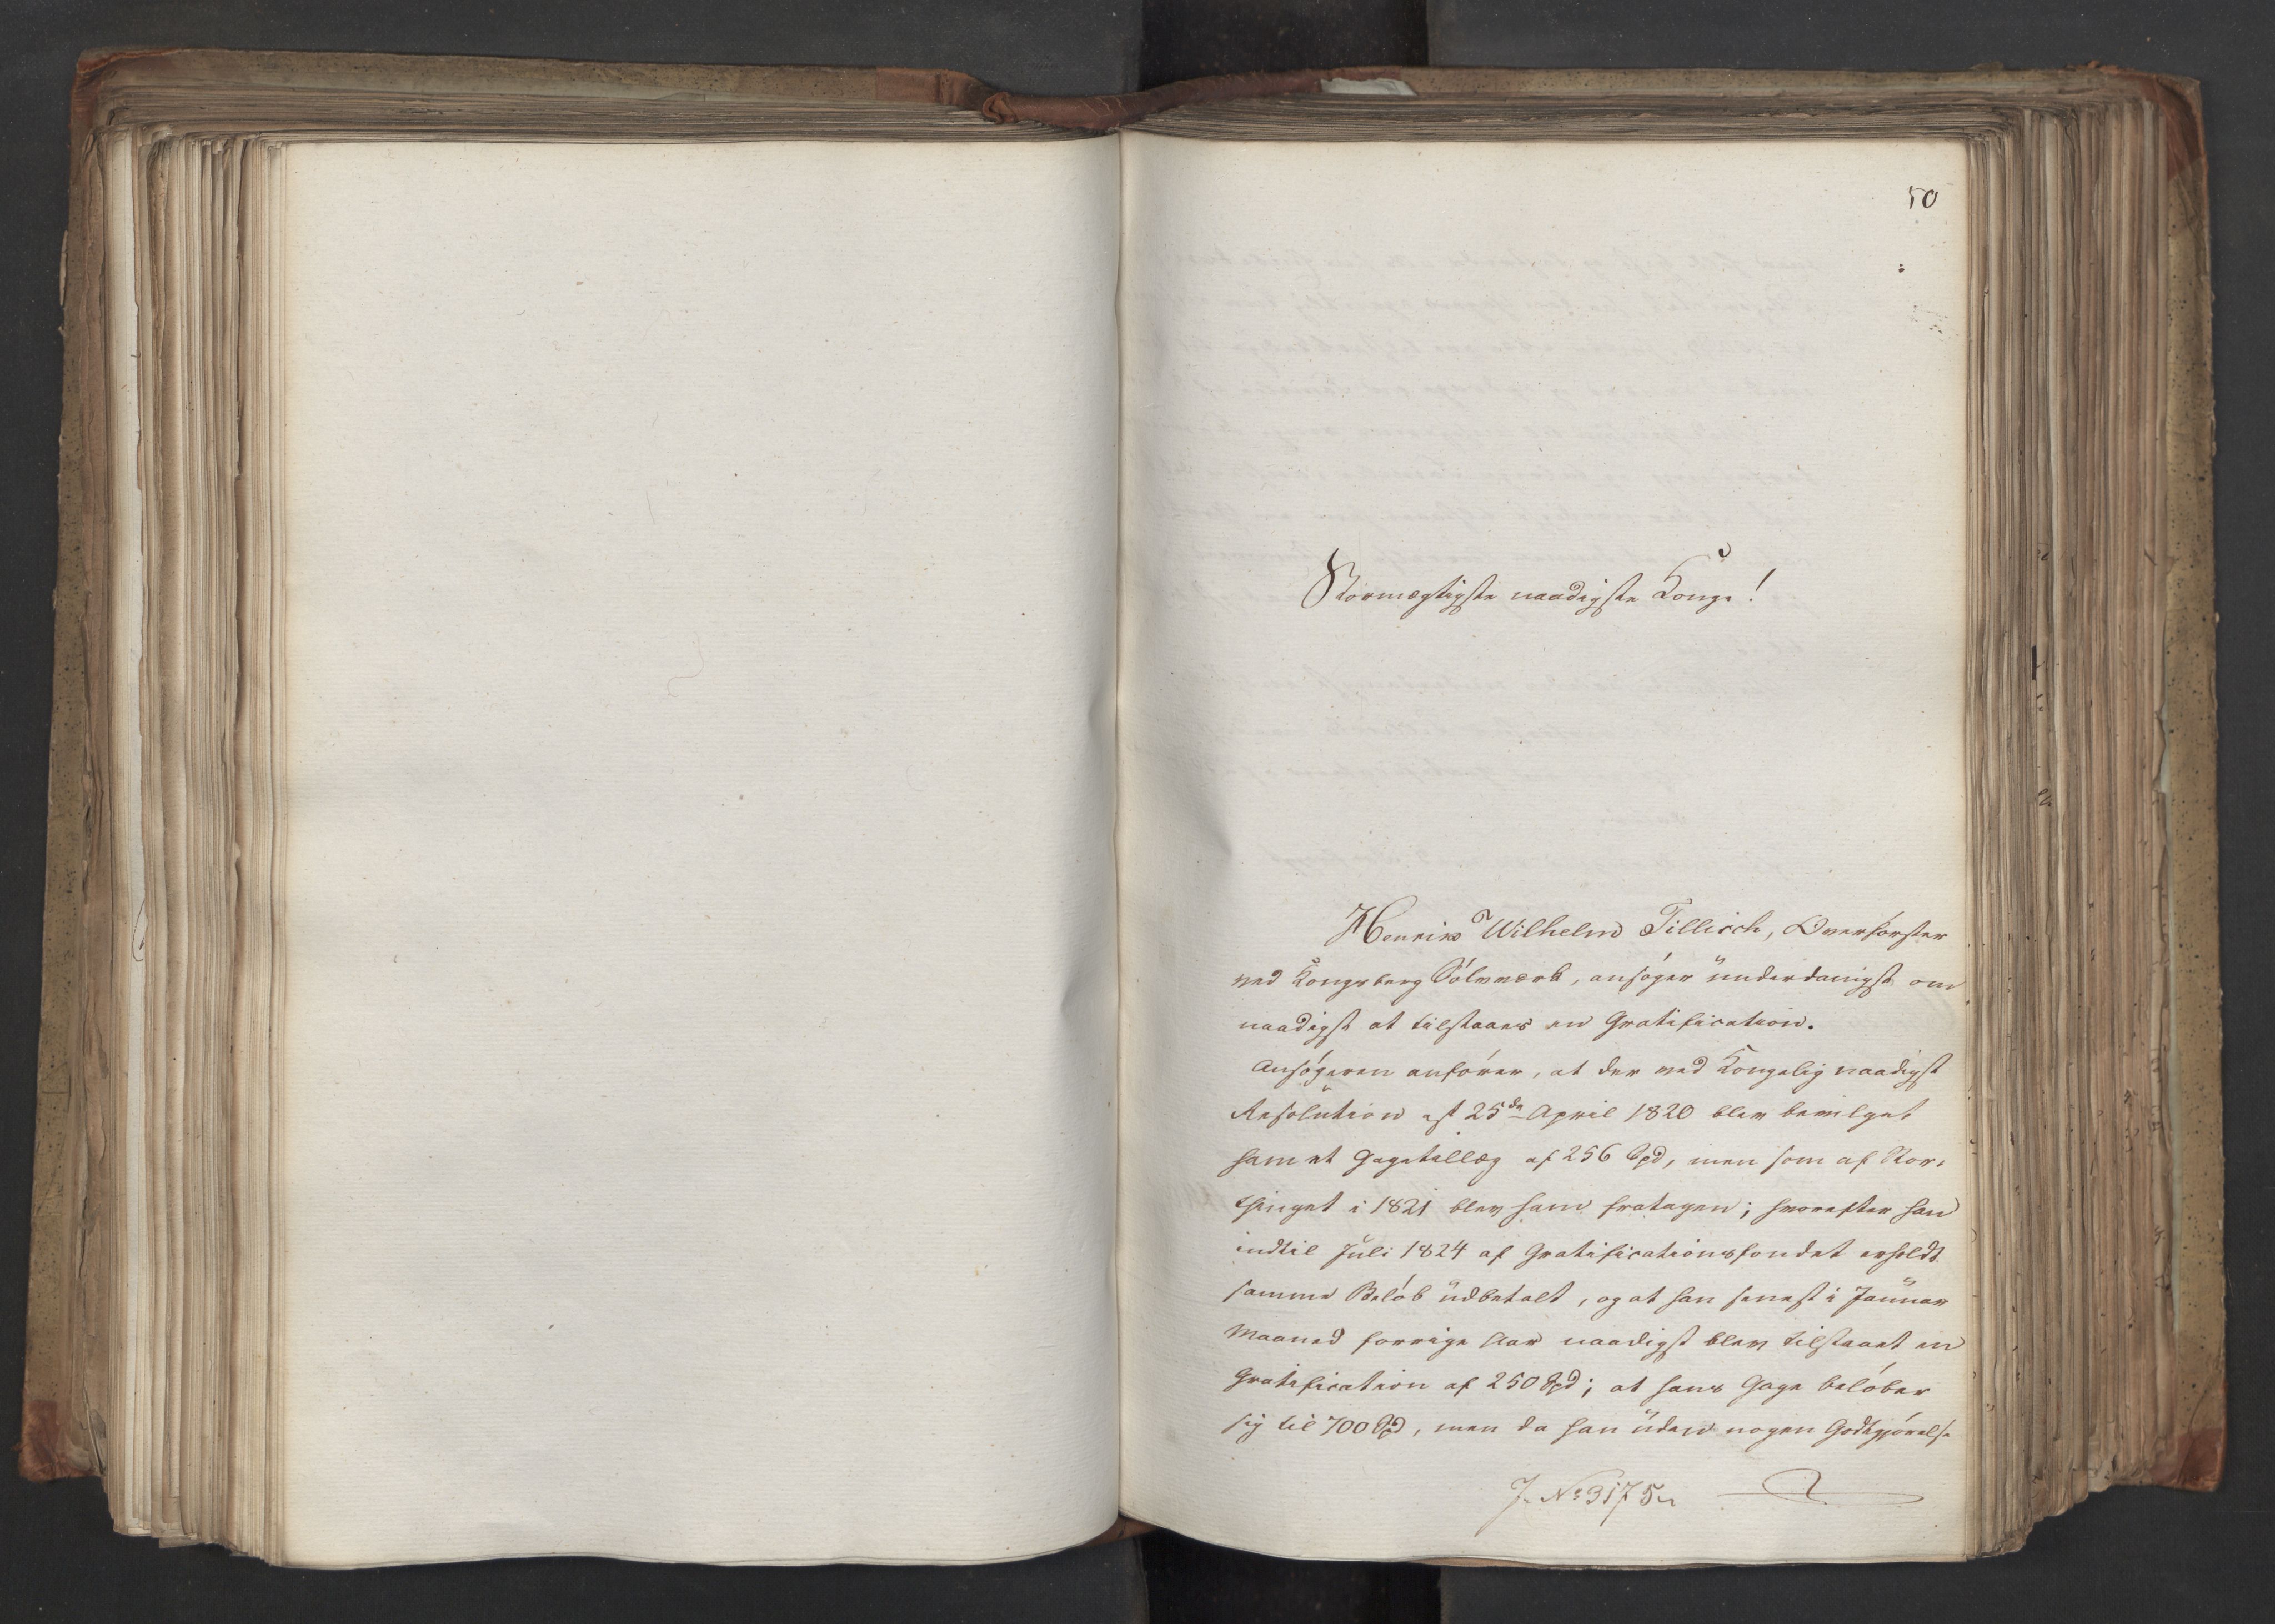 50
Stormægtigste naadigste Konge!
Henrik Wilhelm Tillisch, Overforster
ved Kongsberg Sölvværk, ansöger underdanigst om
naadigst at tilstaaes en Gratification.
Ansögeren anförer, at der ved Kongelig naadigst
Resolution af 25de April 1820 blev bevilget
ham et Gagetillæg af 256 Spd, men som af Stor-
thinget i 1821 blev ham fratagen; hvorefter han
indtil Juli 1824 af Gratificationsfondet erholdt
samme Belöb udbetalt, og at han senest i Januar
Maaned forrige Aar naadigst blev tilstaaet en
Gratification af 250 Spd; at hans Gage belöber
sig til 700 Spd, men da han uden nogen Godtgjörelse
J. No 3175